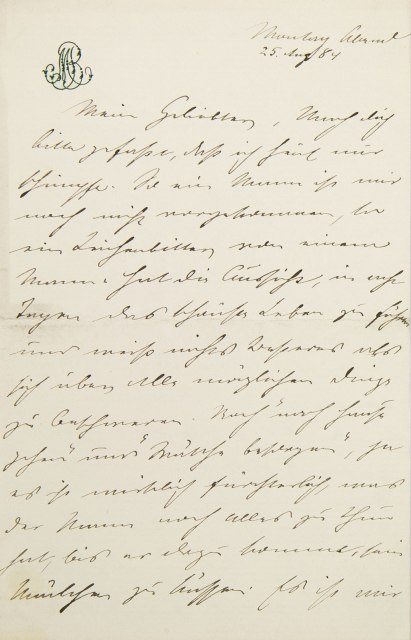 Montag Abend
25. Aug 84
Meine Geliebte, Mach dich
bitte gefaßt, daß ich heut nur
schimpfe. So ein Mann ist mir
noch nicht vorgekommen, so
ein Leichenbitter von einem
Mann. Hat die Aussicht, in acht
Tagen das schönste Leben zu führen
und weiß nichts Besseres als
sich über alle möglichen Dinge
zu beschweren. Noch "nach Hause
gehen" und "Wäsche besorgen", ja
es ist wirklich fürchterlich, was
der Mann noch alles zu thun
hat, bis er dazu kommt, sein
zu küssen. Es ist mir